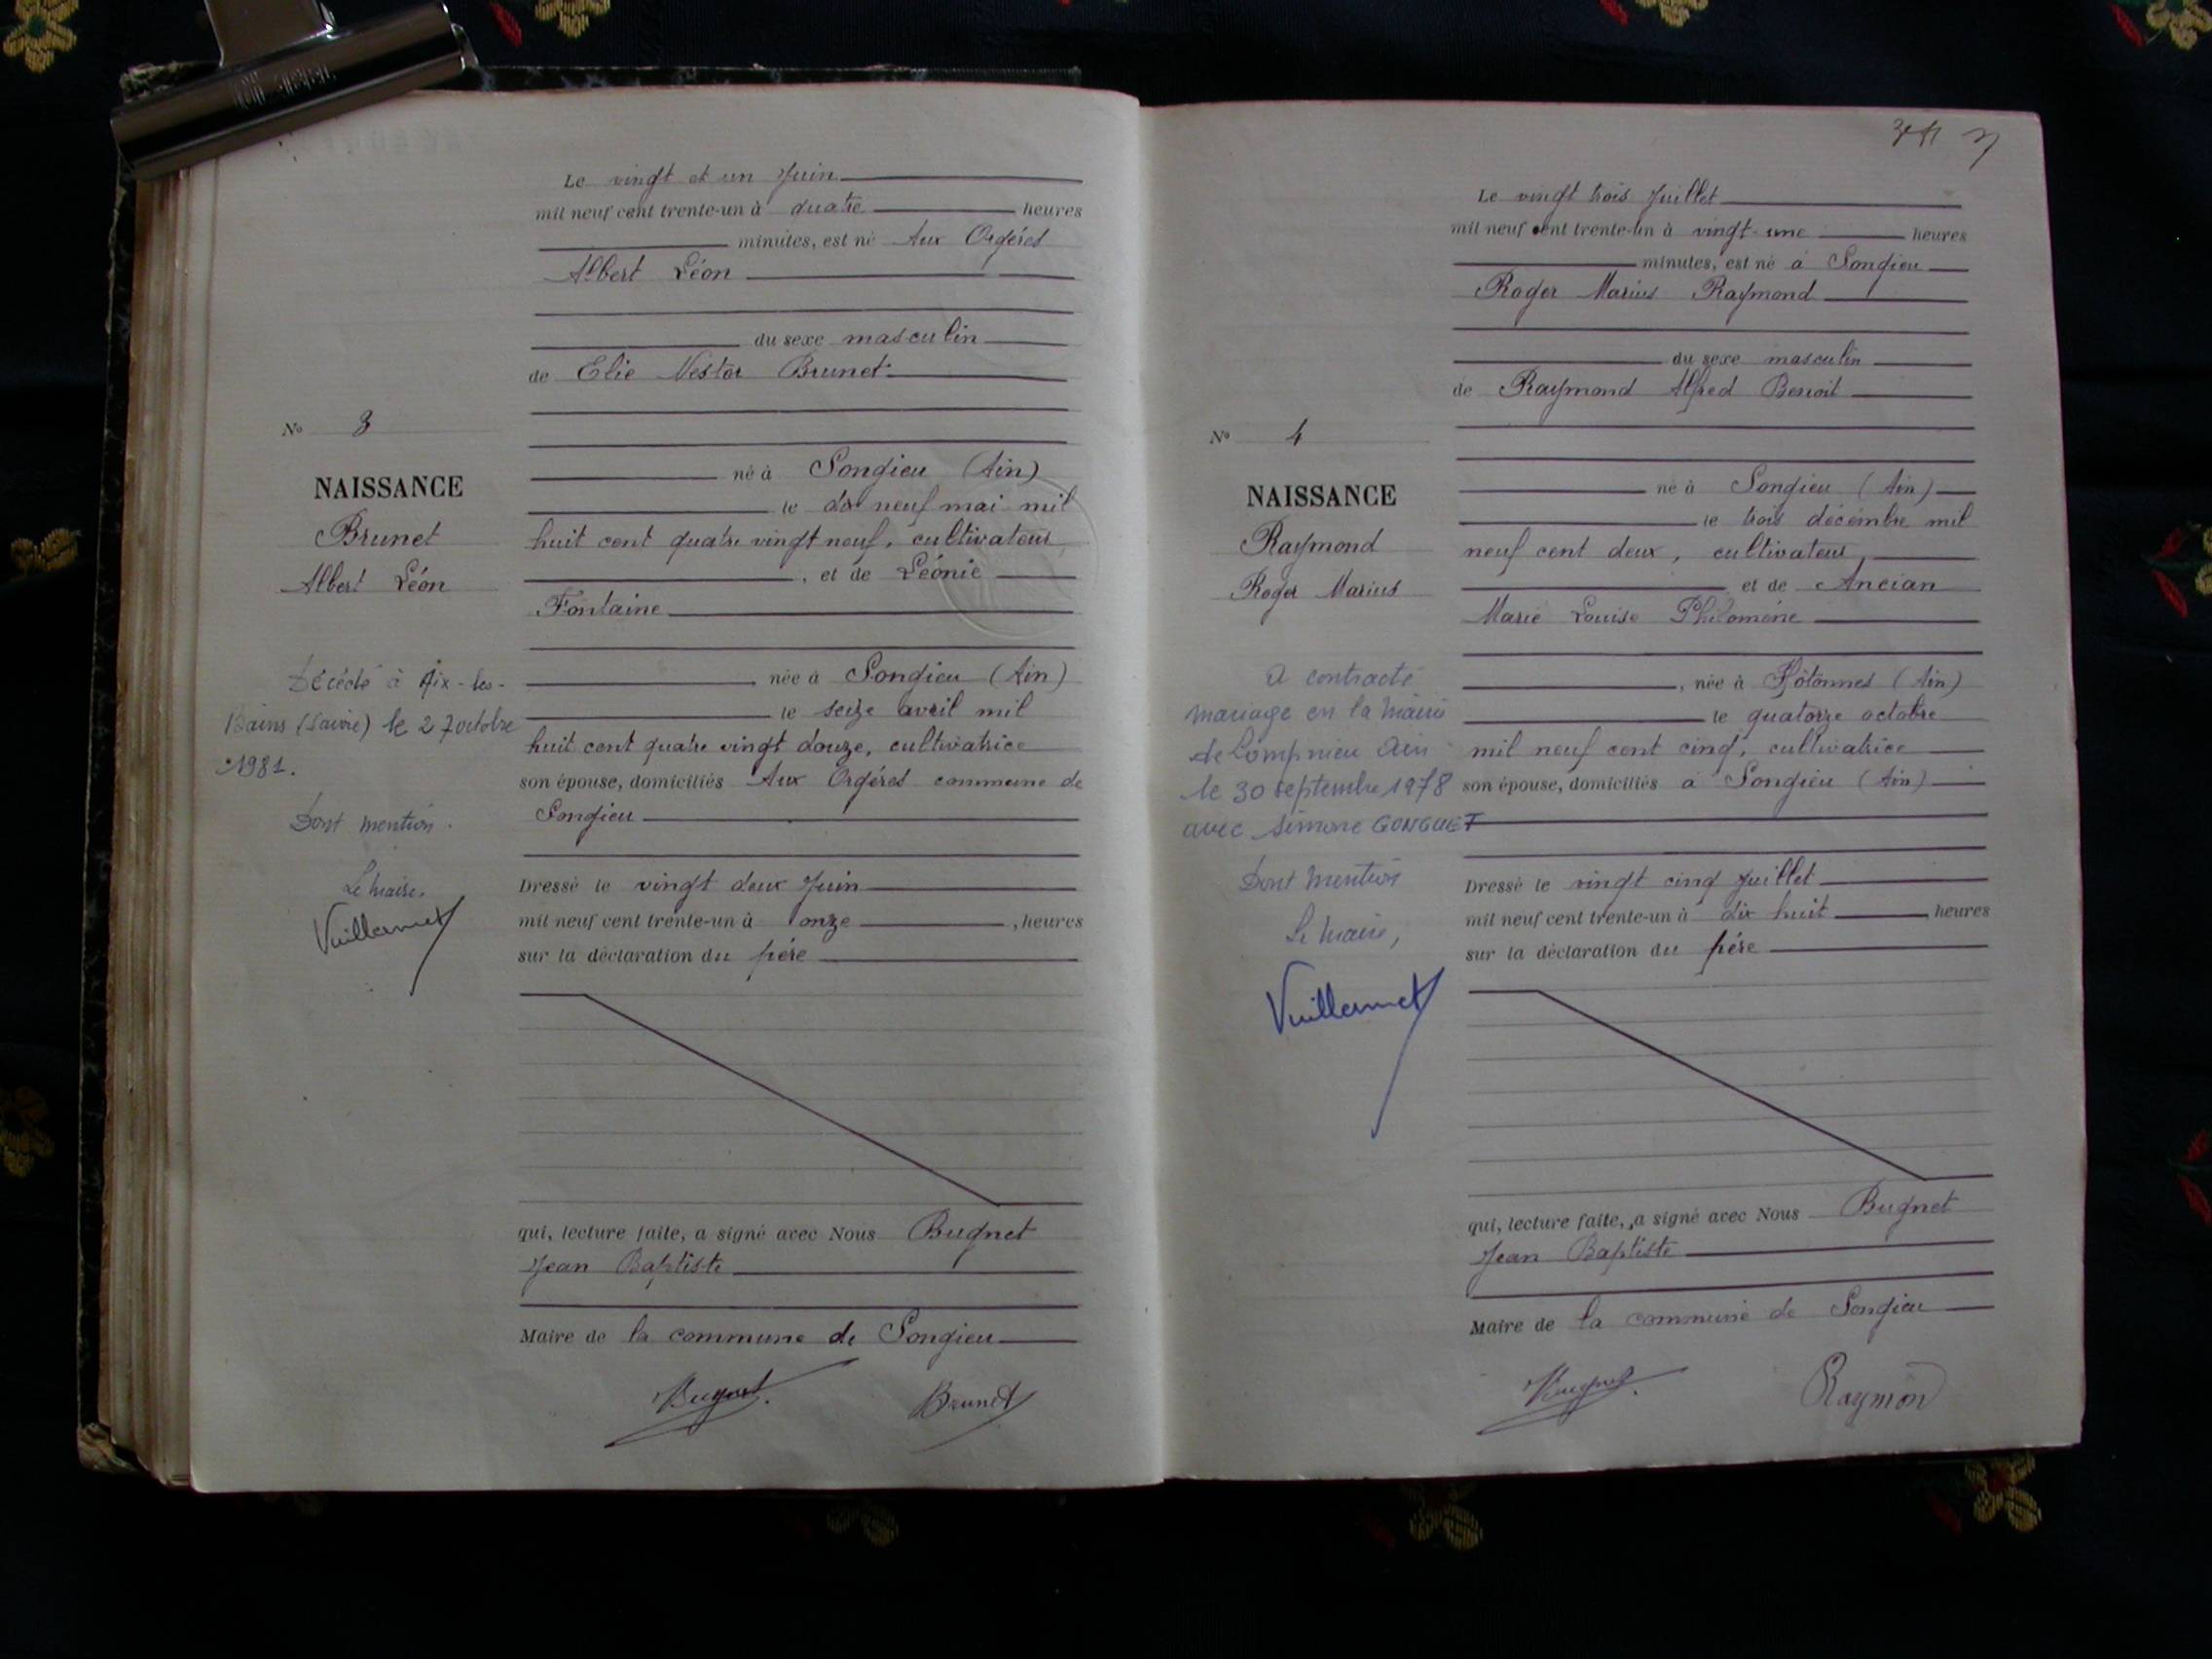 Le vingt et un Juin
mil neuf cent trente-un à quatre heures
minutes, est né Aux Orgéres
Albert Léon
du sexe masculin
de Elie Nestor Brunet
No 3
né à Songieu (Ain)
NAISSANCE
le dix neuf mai mil
Brunet
huit cent quatre vingt neuf, cultivateur
Albert Léon
, et de Léonie
Fontaine
Décédé à Aix-les-
Bains (Savoie) le 27 octobre
1981.
Dont mention.
Le Maire,
Vuillermet
née à Songieu (Ain)
le seize avril mil
huit cent quatre vingt douze, cultivatrice
son épouse, domiciliés Aux Orgéres commune de
Songieu
Dressé le vingt deux Juin
mil neuf cent trente-un à onze , heures
sur la déclaration du père
qui, lecture faite, a signé avec Nous Bugnet
Jean Baptiste
Maire de la commune de Songieu
Bugnet. Brunet
Le vingt trois Juillet
mil neuf cent trente-un à vingt-une heures
minutes, est né à Songieu
Roger Marius Raymond
du sexe masculin
de Raymond Alfred Benoit
No 4
né à Songieu (Ain)
NAISSANCE
le trois décembre mil
Raymond
neuf cent deux, cultivateur
Roger Marius
et de Ancian
Marie Louise Philomène
A contracté
mariage en la Mairie
de Lompnieu Ain
le 30 septembre 1978
avec Simone GONGUET
Dont Mention
Le Maire,
Vuillermet
, née à Hotonnes (Ain)
le quatorze octobre
mil neuf cent cinq, cultivatrice
son épouse, domiciliés à Songieu (Ain)
Dressé le vingt cinq Juillet
mil neuf cent trente-un à dix huit , heures
sur la déclaration du père
qui, lecture faite, a signé avec Nous Bugnet
Jean Baptiste
Maire de la commune de Songieu
Bugnet. Raymon